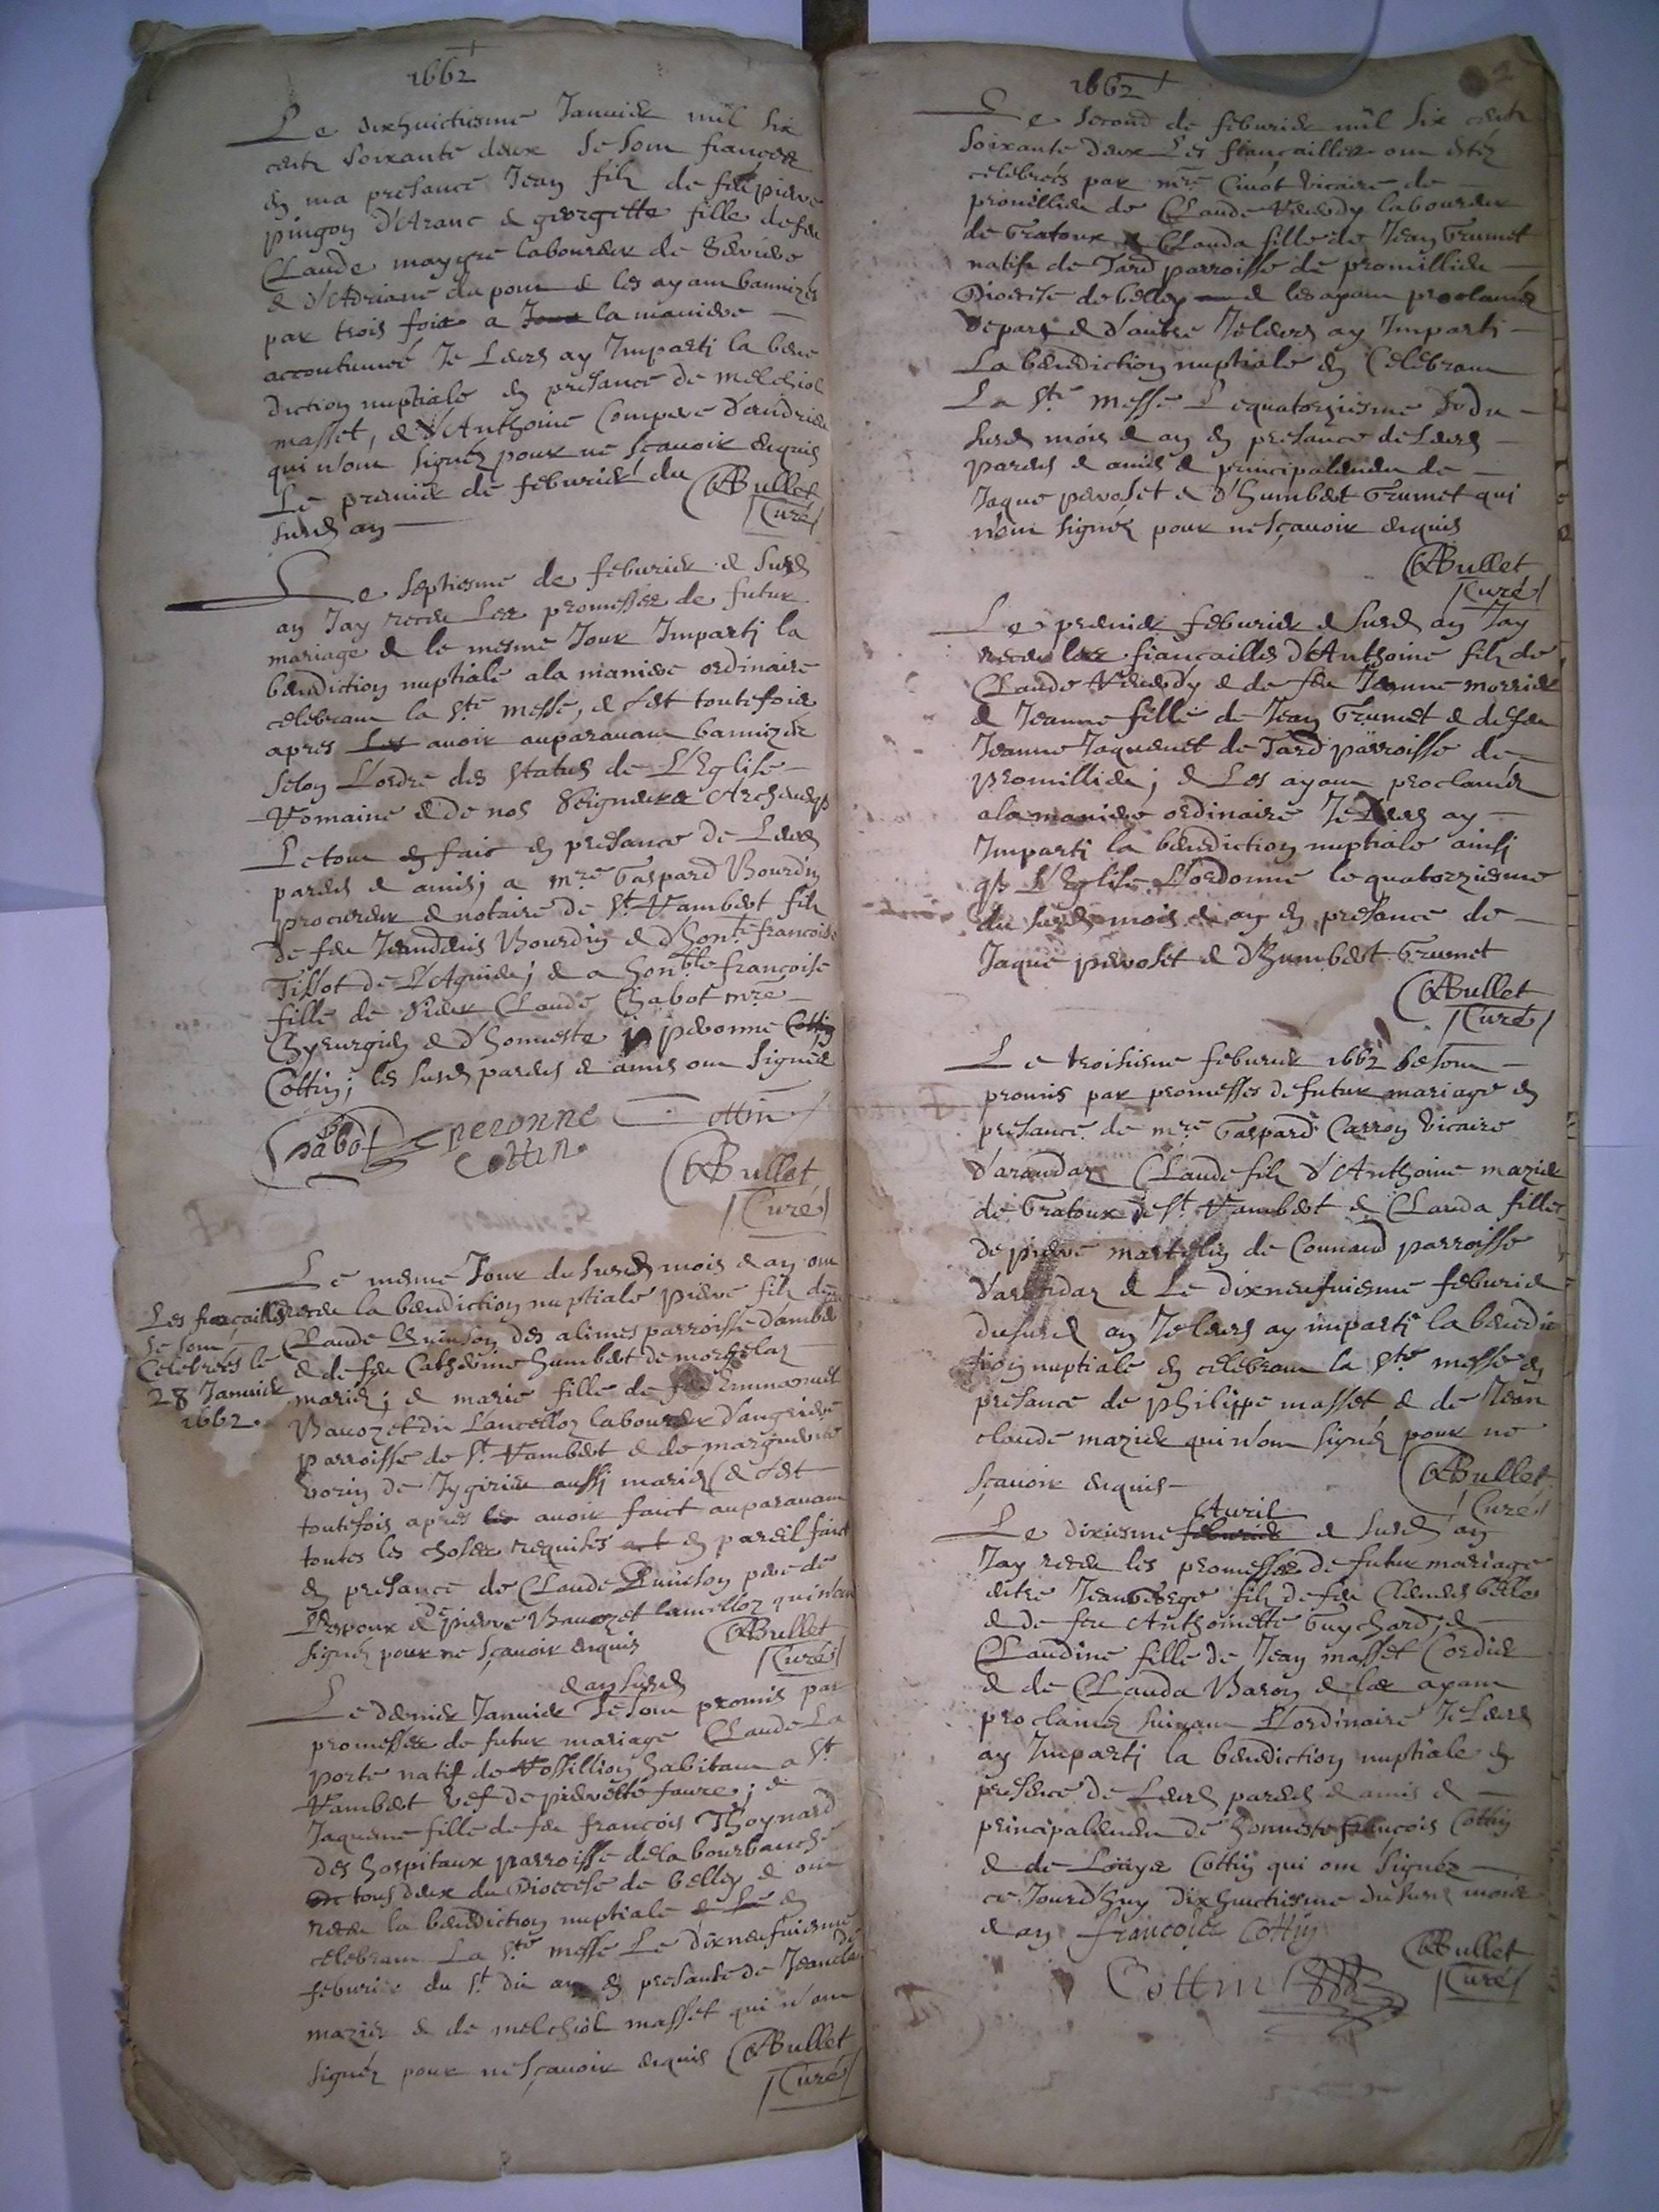 1662
Le dixhuictiesme Januier mil six
cents soixante deux se sont fiancés
en ma presance Jean filz de feu pierre
pingon d'Aranc & georgette fille de feu
Claude maygre laboureur de
& d'Adriane dupont & les ayant bannizés
par trois fois a la maniere
accoutumée Je Leurs ay Imparti la bene
diction nuptiale en presance de melchiol
masset, & d'Anthoine Compere d'andrieu
qui n'ont signéz pour ne sçauoir enquis
Le premier de feburier du
susd. an
CABullet
Curé
Le septiesme de feburier & susd.
an Jay receu Les promesses de futur
mariage & le mesme Jour Imparti la
benediction nuptiale a la maniere ordinaire
celebrant la Ste messe, & c'est toutefois
apres Les auoir auparauant bannizés
selon L'ordre des statuts de L'Eglise
Romaine & de nos seigneurs Archeuesqs
Le tout en fait en presance de Leurs
parens & amis; a mre Gaspard Bourdin
procureur & notaire de St Rambert filz
de feu Jeandenis Bourdin & d'honte francoise
Tissot de L'Aguide; & a honble françoise
fille de sieur Claude Chabot mre
Chyrurgien & d'honneste perronne Cottin
Cottin; les susd. parens & amis ont signés
Chabot peronne Cottin
cottin
CABullet
Curé
Le mesme Jour du susd. mois & an ont
receu la benediction nuptiale pierre filz de
Claude Quinson des alimes parroisse d'ambe
& de feu Catherine humbert de morgelaz
mariés; & marie fille de feu Emmanuel
Bauozet dit Lancelloz laboureur d'angrieres
parroisse de St Rambert & de marguerite
borin de Jygirieu aussi mariés & c'est
toutefois apres les auoir faict auparauant
toutes les choses requises en pareil faict
en presance de Claude Quinson pere de
l'espoux & de pierre Bauozet lancelloz qui n'ont
signéz pour ne sçauoir enquis
CABullet
Curé
Les fiançailles
se sont
Celebrées le
28 Januier
1662.
& an susd.
Le dernier Januier se sont promis par
promesses de futur mariage Claude La
porte natif de Rossillion habitant a St
Rambert vef de pierrette faure; &
Jaqueme fille de feu françois Thoynard
des hospitaux parroisse de la bourbanche
tous deux du Diocese de belley & ont
receu la benediction nuptiale en
celebrant La Ste messe Le dixneufuiesme
feburier du st. dit an en presance de Jeanclau
de
mazier & de melchiol masset qui n'ont
signéz pour ne sçauoir enquis CABullet
Curé
1662
2
Le second de feburier mil six cents
soixante deux Les fiançailles ont estéz
célebrées par mre Ciuot vicaire de
promillieu de Claude Reuerdy laboureur
de Gratoux & Clauda fille de Jean Grumet
natifs de Tard parroisse de promillieu
Diocese de belley & les ayant proclamés
de part & d'autre Je leurs ay Imparti
La benediction nuptiale en Celebrant
La Ste messe Le quatorziesme du
susd. mois & an en presance de Leurs
parens & amis & principalement de
Jaque peroset & d'humbert Grumet qui
n'ont signéz pour ne sçauoir enquis
CABullet
Curé
Le premier feburier & susd. an Jay
receu les fiançailles d'Anthoine filz de
Claude Reuerdy & de feu Jeanne morrier
& Jeanne fille de Jean Grumet & de feu
Jeanne Jaquemet de Tard parroisse de
promillieu; & Les ayant proclamés
a la maniere ordinaire Je Leurs ay
Imparti la benediction nuptiale ainsi
qs L'Eglise L'ordonne le quatorziesme
du susd. mois & an en presance de
Jaque peroset & d'humbert Grumet
CABullet
Curé
Le troisiesme feburier 1662 se sont
promis par promesses de futur mariage en
presance de mre Gaspard Carron vicaire
d'arandaz Claude filz d'Anthoine mazier
de Gratoux de St Rambert & Clauda fille
de pierre martelin de Connand parroisse
d'arandaz & Le dixneufuiesme feburier
du susd. an Je leurs ay imparti la benedic
tion nuptiale en celebrant la Ste messe en
presance de philippe masset & de Jean
claude mazier qui n'ont signés pour ne
sçauoir enquis
CABullet
Curé
Auril
Le dixiesme feburier & susd. an
Jay receu les promesses de futur mariage
entre Jean filz de feu
& de feu Anthoinette Guychard, &
Claudine fille de Jean masset Cordier
& de Clauda Baron & les ayant
proclamés suiuant L'ordinaire Je Leurs
ay Imparti la benediction nuptiale en
presence de Leurs parens & amis &
principalement de honneste françois Cottin
& de Louys Cottin qui ont signéz
ce Jourd'huy dixhuictiesme du susd. mois
& an françois Cottin
CABullet
Curé
Cottin